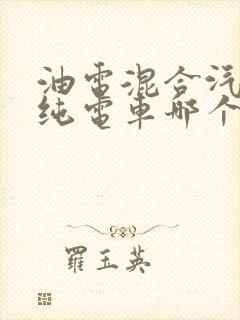 油電混合汽
纯電車哪个
羅玉英